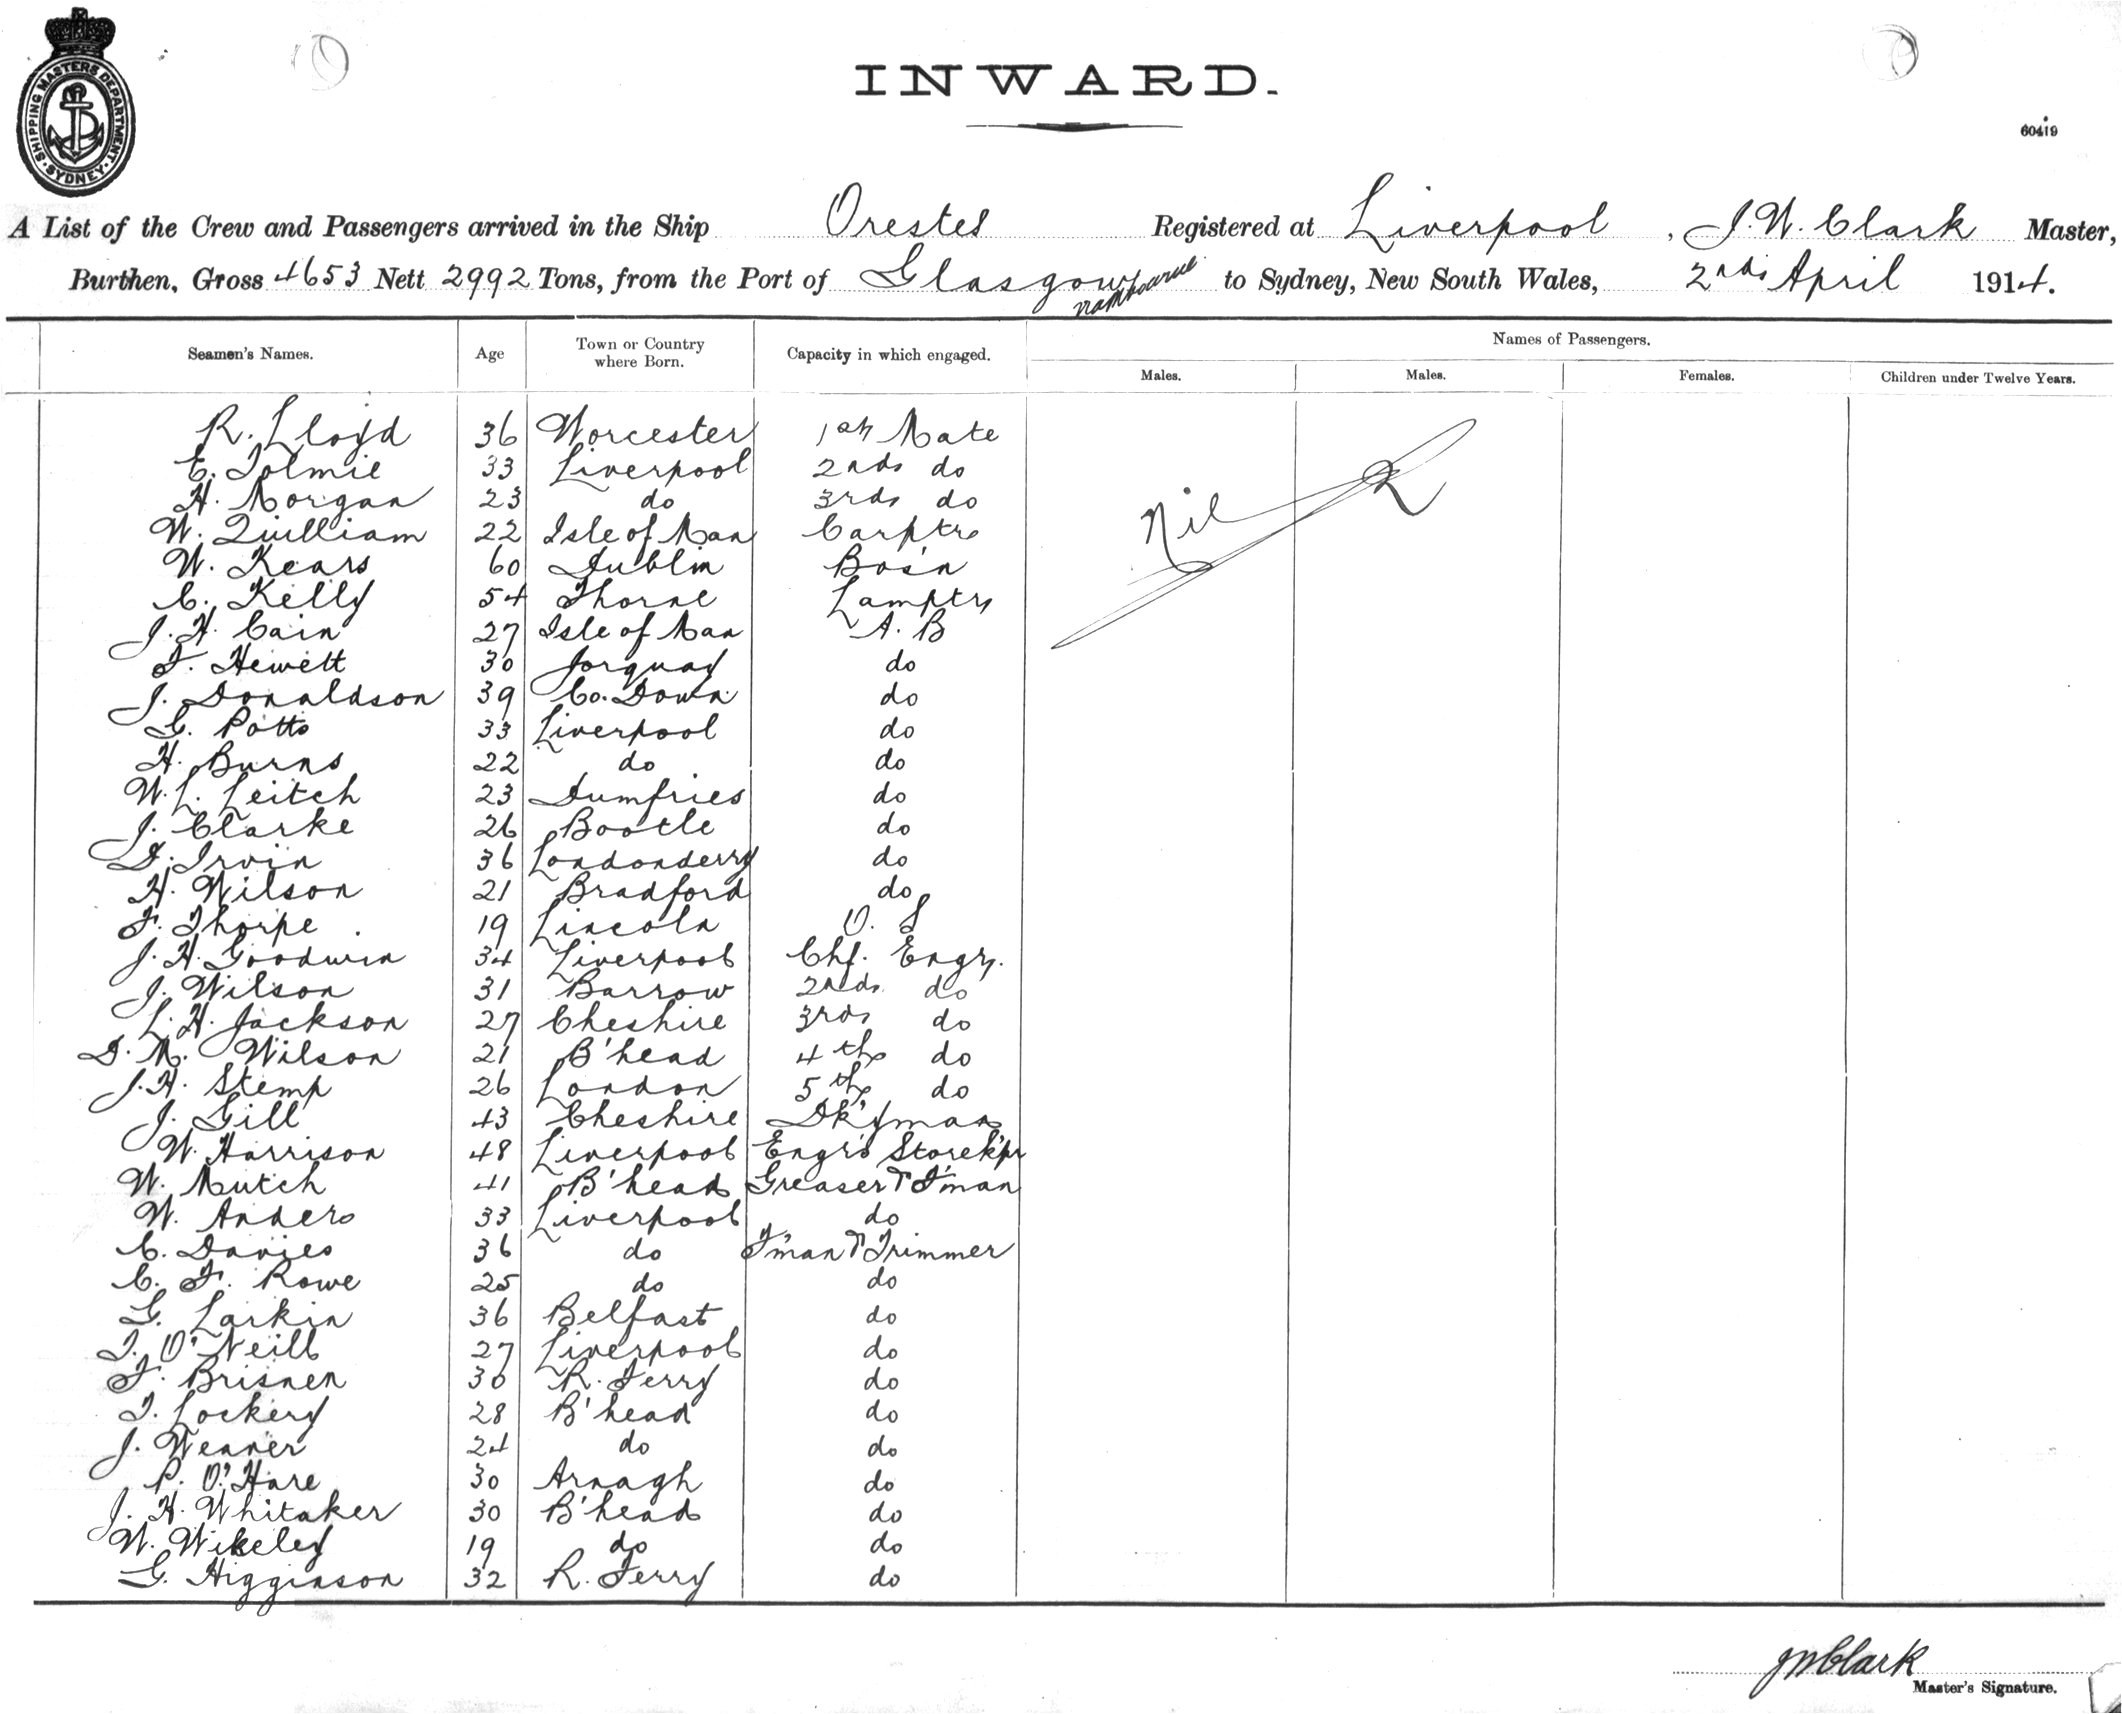 SHIPPING MASTERS DEPARTMENT
SYDNEY
INWARD.
60419
A List of the Crew and Passengers arrived in the Ship Orestes Registered at Liverpool, J. W. Clark Master,
Burthen, Gross 4653 Nett 2992 Tons, from the Port of Glasgow to Sydney, New South Wales, 2nd April 1914.
Seamen's Names. Age Town or Country where Born. Capacity in which engaged. Names of Passengers.
Males. Males. Females. Children under Twelve Years.
R. Lloyd 36 Worcester 1st Mate
C. Tolmie 33 Liverpool 2nd do
H. Morgan 23 do 3rd do
Nil
W. Quilliam 22 Isle of Man Carptr
W. Kears 60 Dublin Bos'n
C. Kelly 54 Thorne Lamptr
J. H. Cain 27 Isle of Man A. B
F. Hewett 30 Torquay do
J. Donaldson 39 Co. Down do
G. Potts 33 Liverpool do
H. Burns 22 do do
W. L. Leitch 23 Dumfries do
J. Clarke 26 Bootle do
D. Irvin 36 Londonderry do
H. Wilson 21 Bradford do
F. Thorpe 19 Lincoln O. S
J. H. Goodwin 34 Liverpool Chf. Engr.
J. Wilson 31 Barrow 2nd do
L. H. Jackson 27 Cheshire 3rd do
D. M. Wilson 21 B'head 4th do
J. H. Stemp 26 London 5th do
J. Gill 43 Cheshire Dk'yman
W. Harrison 48 Liverpool Engr's Storek'pr
W. Mutch 41 B'head Greaser & F'man
W. Anders 33 Liverpool do
C. Davies 36 do F'man & Trimmer
C. F. Rowe 25 do do
G. Larkin 36 Belfast do
T. O'Neill 27 Liverpool do
F. Brisnen 30 R. Ferry do
T. Lockery 28 B'head do
J. Weaver 24 do do
P. O'Hare 30 Arnagh do
J. H. Whitaker 30 B'head do
W. Wikeley 19 do do
G. Higginson 32 R. Ferry do
JWClark
Master's Signature.